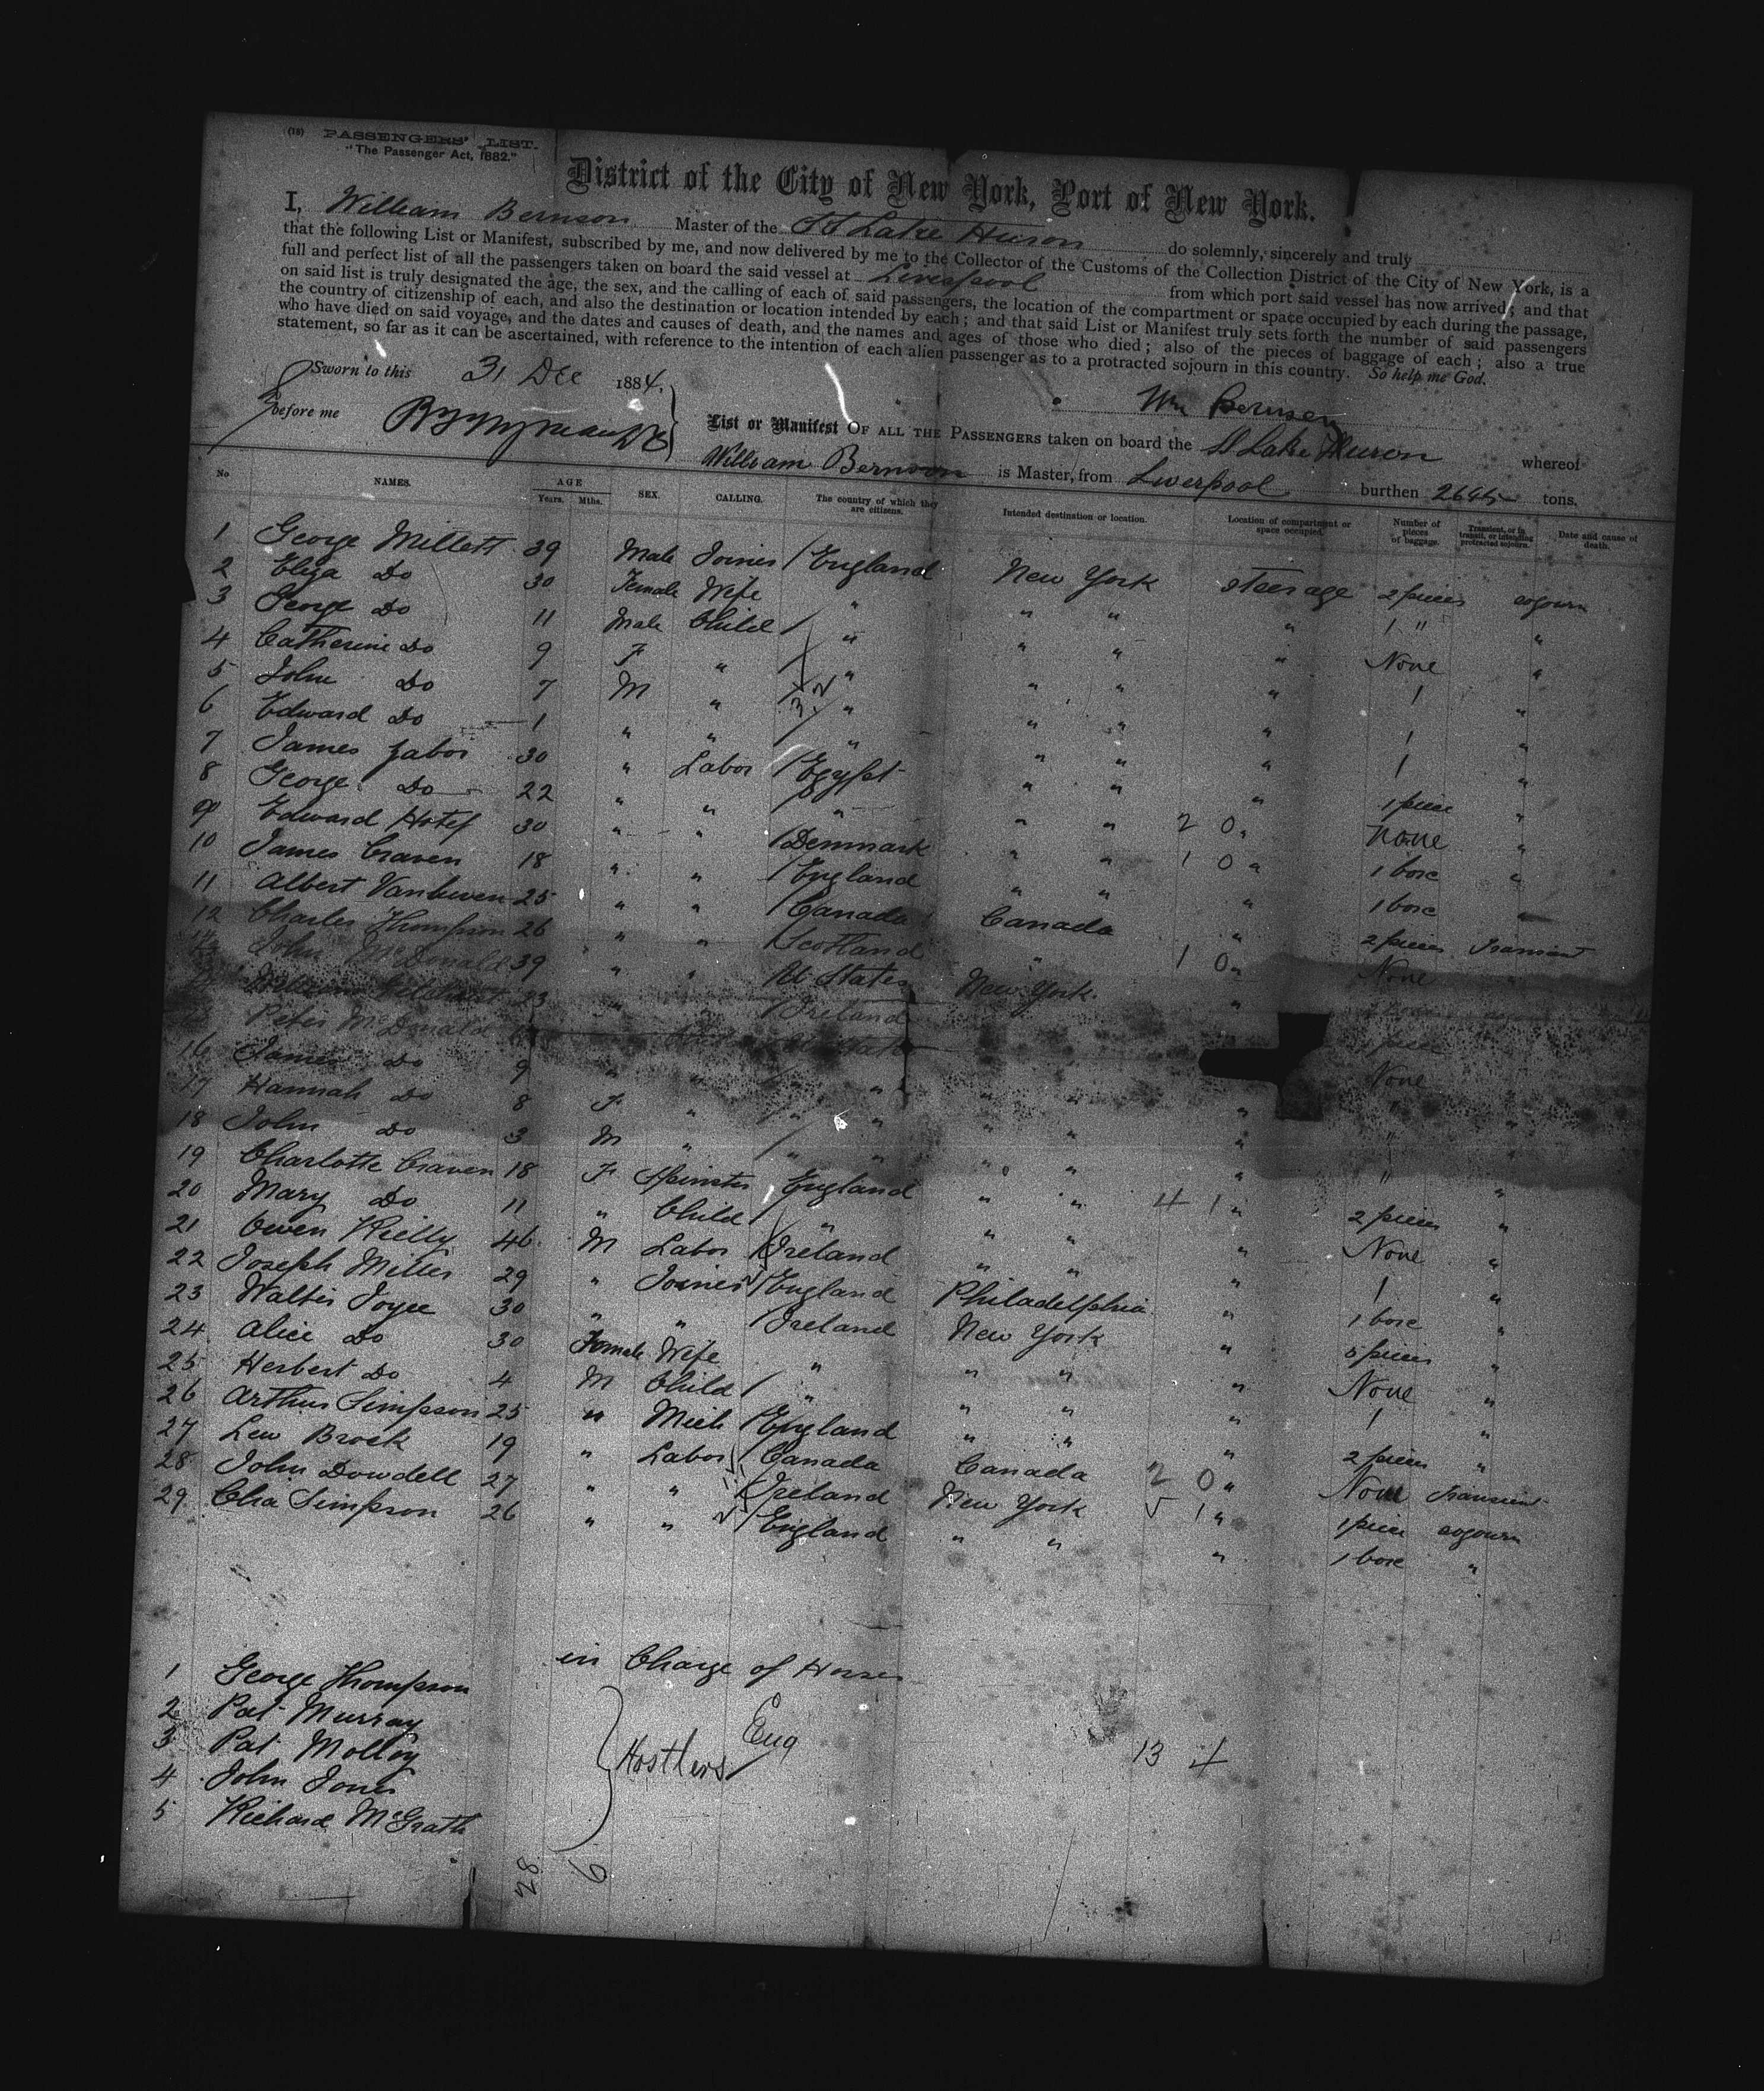 (18) PASSENGERS' LIST.
"The Passenger Act, 1882."
District of the City of New York, Port of New York.
I, William Bernson Master of the SS Lake Huron do solemnly, sincerely and truly
that the following List or Manifest, subscribed by me, and now delivered by me to the Collector of the Customs of the Collection District of the City of New York, is a
full and perfect list of all the passengers taken on board the said vessel at Liverpool from which port said vessel has now arrived; and that
on said list is truly designated the age, the sex, and the calling of each of said passengers, the location of the compartment or space occupied by each during the passage,
the country of citizenship of each, and also the destination or location intended by each; and that said List or Manifest truly sets forth the number of said passengers
who have died on said voyage, and the dates and causes of death, and the names and ages of those who died; also of the pieces of baggage of each; also a true
statement, so far as it can be ascertained, with reference to the intention of each alien passenger as to a protracted sojourn in this country. So help me God.
Sworn to this 31 Dec 1884.
before me
Wm Bernson
List or Manifest OF ALL THE PASSENGERS taken on board the SS Lake Huron whereof
William Bernson is Master, from Liverpool burthen 2645 tons.
No NAMES. AGE Years. Mths. SEX. CALLING. The country of which they are citizens. Intended destination or location. Location of compartment or space occupied. Number of pieces of baggage. Transient, or in transit, or intending protracted sojourn. Date and cause of death.
1 George Millett 39 Male Joiner England New York Steerage 2 pieces sojourn
2 Eliza Do 30 Female Wife " " " " 1 " "
3 George Do 11 Male Child " " " " None "
4 Catherine Do 9 F " " " " " 1 "
5 John Do 7 M " " " " " 1 "
6 Edward Do 1 " " " " " " 1 "
7 James Jabor 30 " Labor Egypt " " " 1 piece "
8 George Do 22 " " " " " 2 0 " None "
9 Edward 30 " " Denmark " " 1 0 " 1 box "
10 James Craven 18 " " England " " " 1 box "
11 Albert 25 " " Canada Canada " 2 pieces Transient
12 Charles Thompson 26 " " Scotland " 1 0 " None
John McDonald 39 " " U States New York "
23 " Ireland 1 piece
Peter McDonald None
16 James Do 9 " " " " " " "
17 Hannah Do 8 F " " " " " " "
18 John Do 3 M " " " " " " " "
19 Charlotte Craven 18 F Spinster England " " 4 1 " 2 pieces "
20 Mary Do 11 " Child " " " " None "
21 Owen Reilly 46 M Labor Ireland " " " 1 "
22 Joseph Miller 29 " Joiner England Philadelphia " 1 box "
23 Walter Joyce 30 " " Ireland New York " pieces "
24 Alice Do 30 Female Wife " " " " None "
25 Herbert Do 4 M Child " " " " 1 "
26 Arthur Simpson 25 " Mech England " " " 2 pieces "
27 Lew Brock 19 " Labor Canada Canada 2 0 " None Transient
28 John Dowdell 27 " " Ireland New York 1 " 1 piece sojourn
29 Cha Simpson 26 " " England " " " 1 box "
in Charge of Horses
1 George Thompson
2 Pat Murray
3 Pat Molloy
4 John Jones
5 Richard McGrath
Hostlers Eng
13 4
28 6